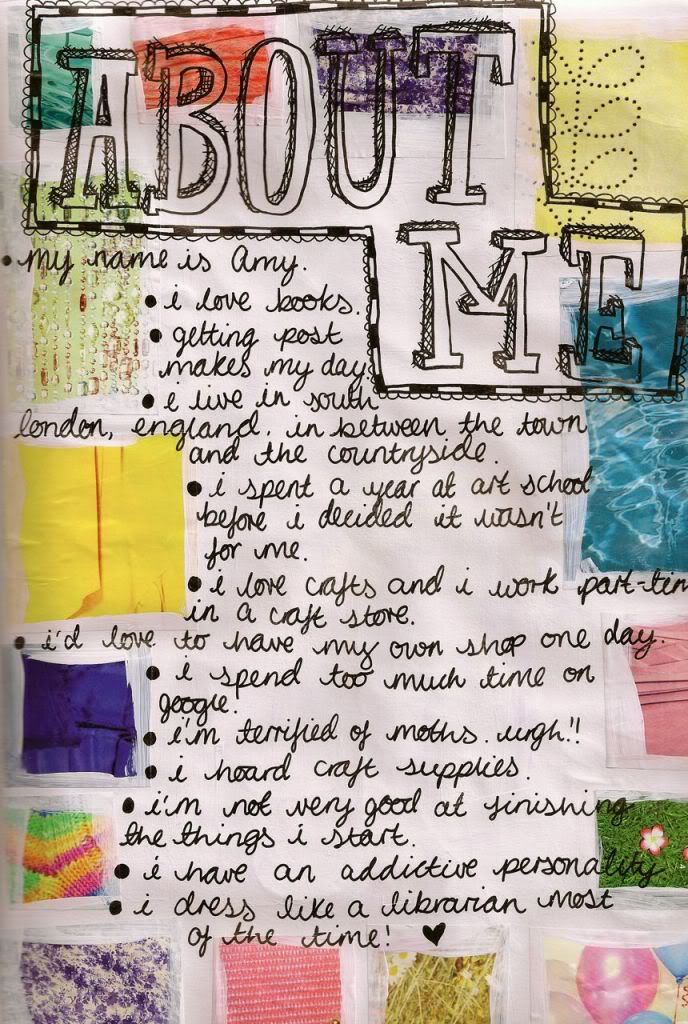 ABOUT
ME
• my name is Amy.
• i love books.
• getting post
makes my day
• i live in south
london, england. in between the town
and the countryside.
• i spent a year at art school
before i decided it wasn't
for me.
• i love crafts and i work part-tim
in a craft store.
• i'd love to have my own shop one day.
• i spend too much time on
google.
• i'm terrified of moths. urgh!!
• i hoard craft supplies.
• i'm not very good at finishing
the things i start.
• i have an addictive personality
• i dress like a librarian most
of the time! ♥